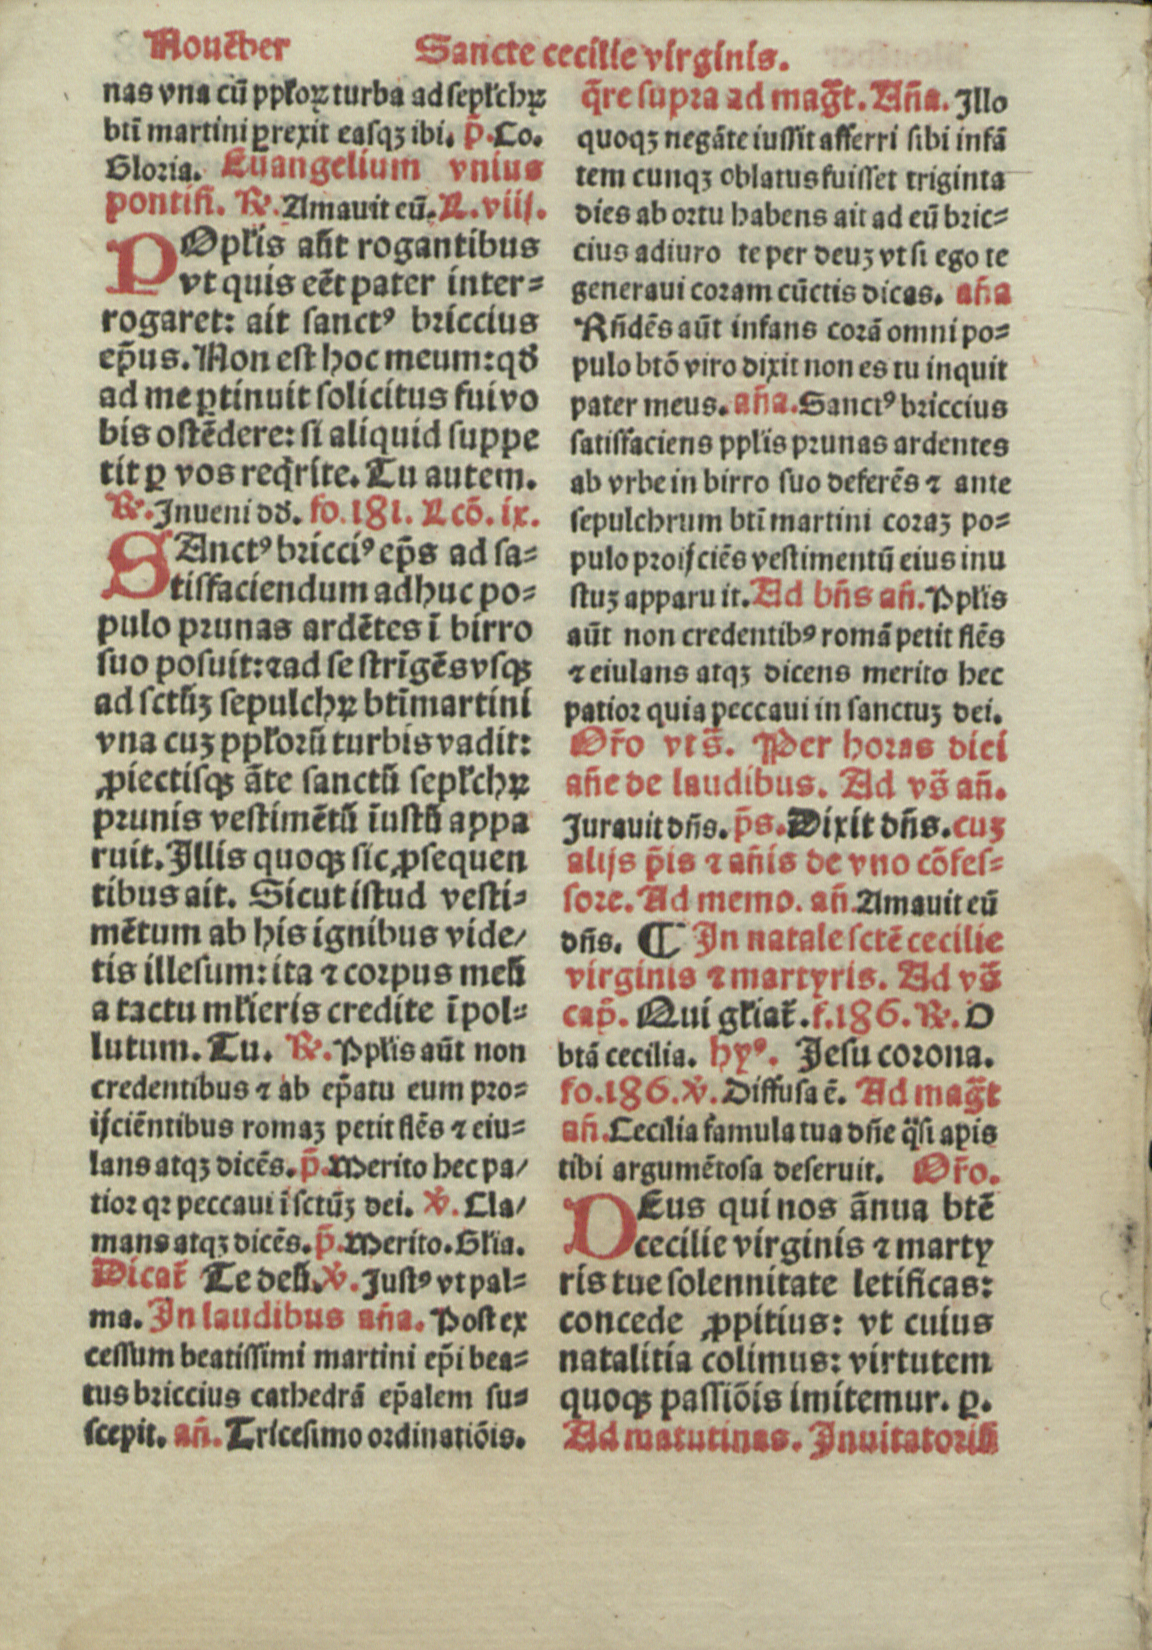 Nouēber
Sancte cecilie virginis.
nas vna cū ppłoꝝ turba ad sepłchꝝ
bti̅ martini ꝑrexit easqꝫ ibi. p̄. Co.
Gloria. Euangelium vnius
pontifi. ℟. Amauit eū. L. viij.
POpłis aūt rogantibus
vt quis eēt pater inter⸗
rogaret: ait sanctꝰ briccius
ep̄us. Non est hoc meum: qđ
ad me ꝑtinuit solicitus fui vo
bis ostēdere: si aliquid suppe
tit ꝑ vos reqͥrite. Tu autem.
℟. Inueni dđ. fo. 181. Lcō. ix.
SAnctꝰ bricciꝰ ep̄s ad sa⸗
tisfaciendum adhuc po⸗
pulo prunas ardētes ī birro
suo posuit: ⁊ ad se strīgēs vsqꝫ
ad sctūꝫ sepulchꝝ bti̅ martini
vna cuꝫ ppłorū turbis vadit:
ꝓiectisqꝫ āte sanctū sepłchꝝ
prunis vestimētū īustū appa
ruit. Illis quoqꝫ sic ꝓsequen
tibus ait. Sicut istud vesti⸗
mētum ab his ignibus vide/
tis illesum: ita ⁊ corpus meū
a tactu młieris credite īpol⸗
lutum. Tu. ℟. Ppłis aūt non
credentibus ⁊ ab ep̄atu eum pro⸗
ijciēntibus romaꝫ petit flēs ⁊ eiu⸗
lans atqꝫ dicēs. p̄. Merito hec pa/
tior qꝛ peccaui ī sctūꝫ dei. ℣. Cla/
mans atqꝫ dicēs. p̄. Merito. Głia.
Dicat̄ Te deū. ℣. Justꝰ vt pal⸗
ma. In laudibus aña. Post ex
cessum beatissimi martini ep̄i bea⸗
tus briccius cathedrā ep̄alem su⸗
scepit. añ. Tricesimo ordinatiōis.
q̄re supra ad mag̅t. Aña. Illo
quoqꝫ negāte iussit afferri sibi infā
tem cunqꝫ oblatus fuisset triginta
dies ab ortu habens ait ad eū bric⸗
cius adiuro te per deuꝫ vt si ego te
generaui coram cūctis dicas. aña
Rn̄dēs aūt infans corā omni po⸗
pulo btō viro dixit non es tu inquit
pater meus. aña. Sanctꝰ briccius
satisfaciens ppłis prunas ardentes
ab vrbe in birro suo deferēs ⁊ ante
sepulchrum bti̅ martini coraꝫ po⸗
pulo proijciēs vestimentū eius inu
stuꝫ apparuit. Ad bn̄s añ. Ppłis
aūt non credentibꝰ romā petit flēs
⁊ eiulans atqꝫ dicens merito hec
patior quia peccaui in sanctuꝫ dei.
Or̄o vts̄. Per horas diei
añe de laudibus. Ad vs̄ añ.
Jurauit dn̄s. p̄s. Dixit dn̄s. cuꝫ
alijs p̄is ⁊ añis de vno cōfes⸗
sore. Ad memo. añ. Amauit eū
dn̄s. ¶ In natale sctē cecilie
virginis ⁊ martyris. Ad vs̄
cap̄. Qui głiat̄. f. 186. ℟. O
btā cecilia. hyꝰ. Jesu corona.
fo. 186. ℣. Diffusa ē. Ad mag̅t
añ. Cecilia famula tua dn̄e q̈si apis
tibi argumētosa deseruit. Or̄o.
DEus qui nos ānua btē
cecilie virginis ⁊ marty
ris tue solennitate letificas:
concede ꝓpitius: vt cuius
natalitia colimus: virtutem
quoqꝫ passiōis imitemur. ꝑ.
Ad matutinas. Inuitatoriū